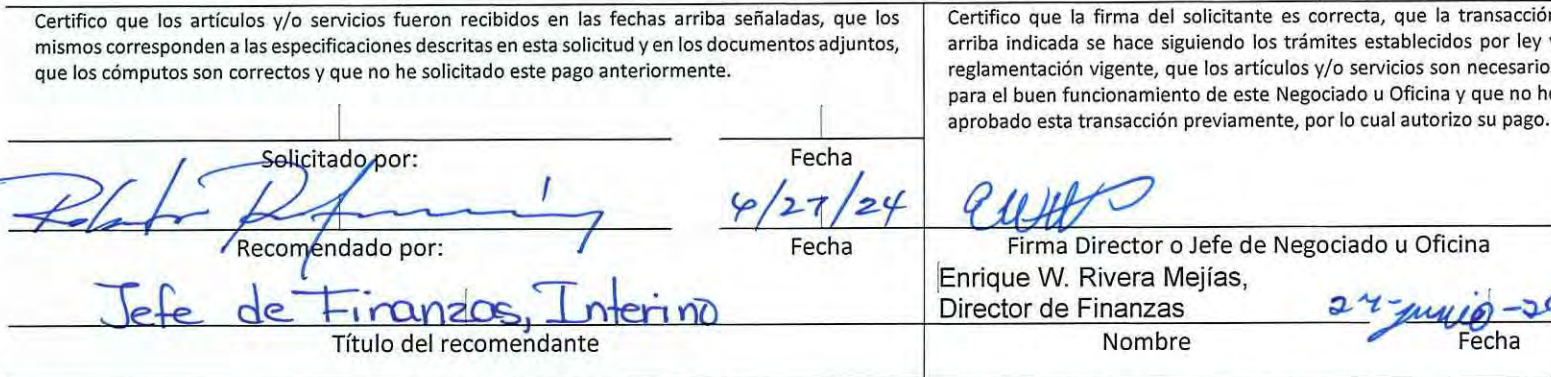 Certifico que los artículos y/o servicios fueron recibidos en las fechas arriba señaladas, que los
mismos corresponden a las especificaciones descritas en esta solicitud y en los documentos adjuntos,
que los cómputos son correctos y que no he solicitado este pago anteriormente.
Solicitado por:
Fecha
Recomendado por:
Fecha
Jefe de Finanzas, Interino
Título del recomendante
Certifico que la firma del solicitante es correcta, que la transacción
arriba indicada se hace siguiendo los trámites establecidos por ley
reglamentación vigente, que los artículos y/o servicios son
para el buen funcionamiento de este Negociado u Oficina y que no
aprobado esta transacción previamente, por lo cual autorizo su pago.
Firma Director o Jefe de Negociado u Oficina
Enrique W. Rivera Mejías,
Director de Finanzas
Nombre
Fecha